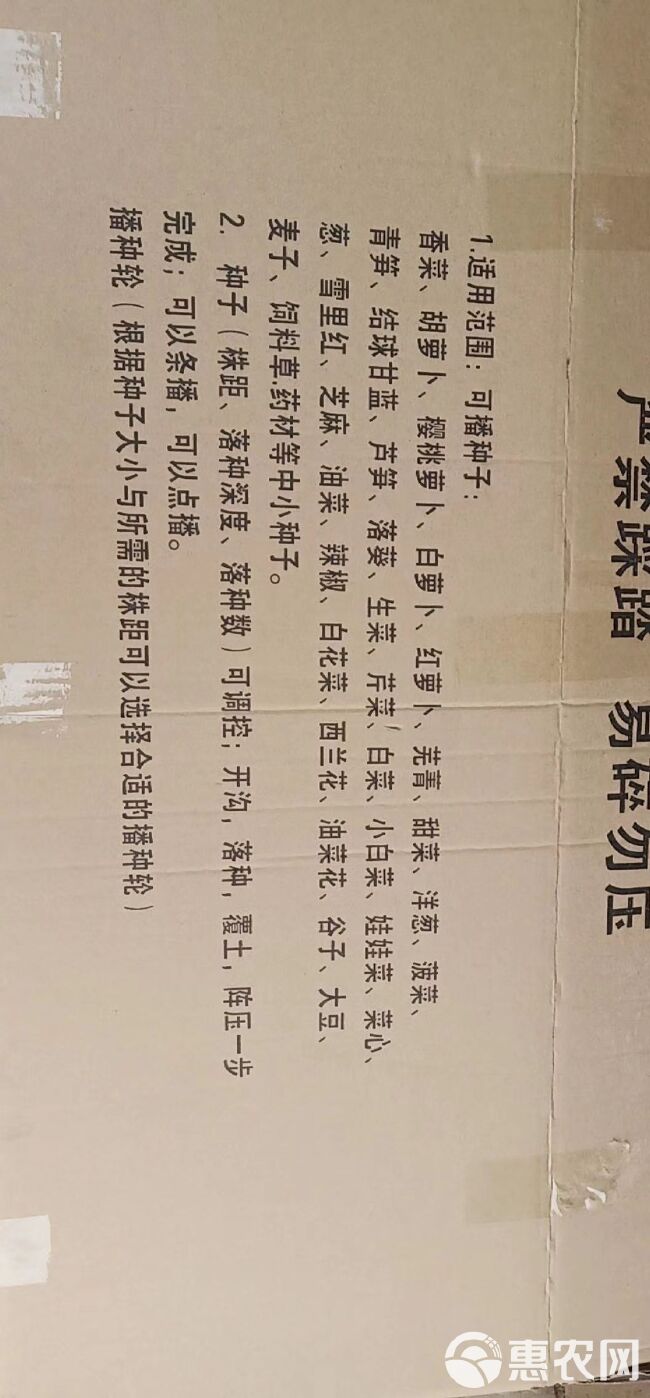 严禁踩踏 易碎勿压
1.适用范围：可播种子：
香菜、胡萝卜、樱桃萝卜、白萝卜、红萝卜、芜菁、甜菜、洋葱、菠菜、
青笋、结球甘蓝、芦笋、落葵、生菜、芹菜、白菜、小白菜、娃娃菜、菜心、
葱、雪里红、芝麻、油菜、辣椒、白花菜、西兰花、油菜花、谷子、大豆、
麦子、饲料草.药材等中小种子。
2. 种子（株距、落种深度、落种数）可调控；开沟，落种，覆土，阵压一步
完成；可以条播，可以点播。
播种轮（根据种子大小与所需的株距可以选择合适的播种轮）
惠农网